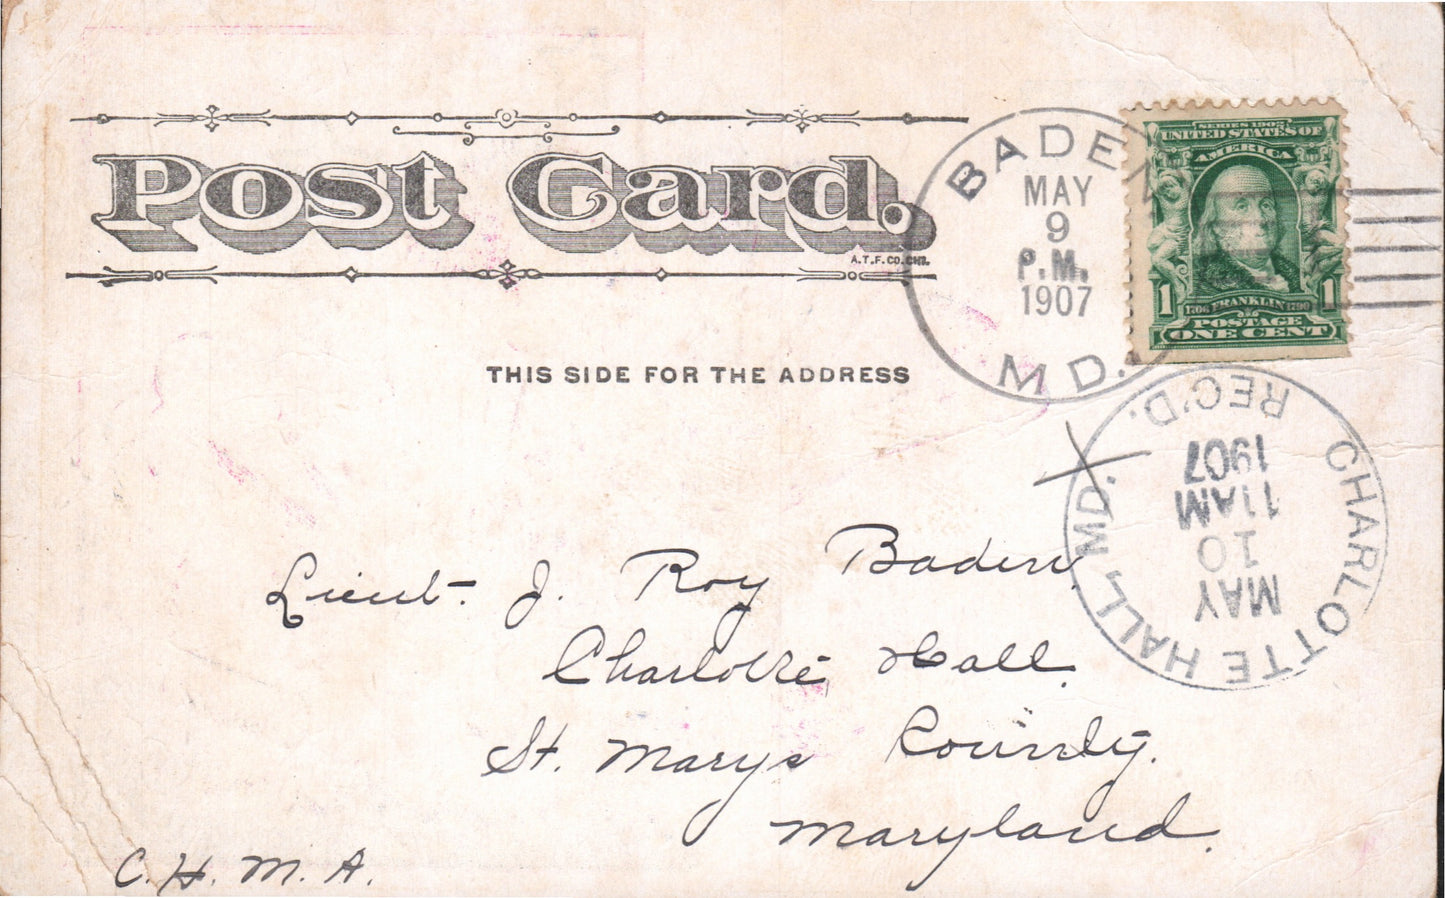 Post Card.
A.T.F.CO.CHI.
THIS SIDE FOR THE ADDRESS
BADEN
MAY
9
P.M.
1907
MD.
SERIES 1902
UNITED STATES OF
AMERICA
1 1
1706 FRANKLIN 1790
POSTAGE
ONE CENT
CHARLOTTE HALL, MD.
REC'D.
MAY
10
11AM
1907
Lieut. J. Roy Baden
Charlotte Hall.
St. Marys County.
Maryland.
C. H. M. A.